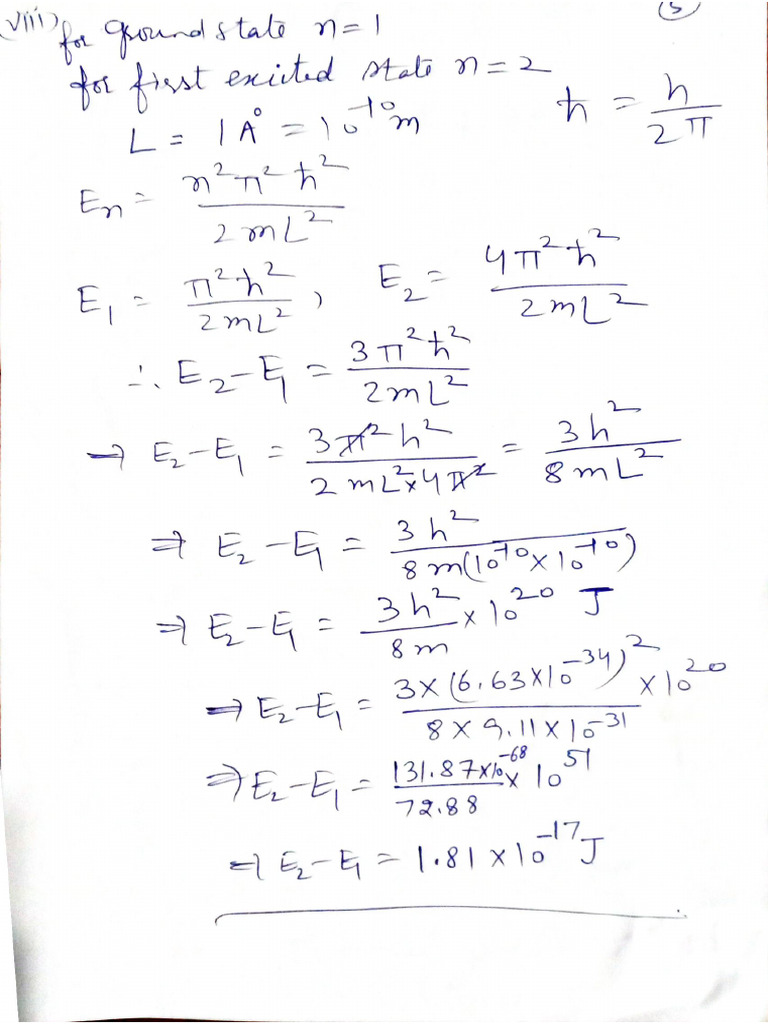 (5)
viii) for ground state n=1
for first excited state n=2
L = 1 A° = 10⁻¹⁰ m
ħ = h / 2π
Eₙ = n²π²ħ² / 2mL²
E₁ = π²ħ² / 2mL² , E₂ = 4π²ħ² / 2mL²
∴ E₂–E₁ = 3π²ħ² / 2mL²
→ E₂–E₁ = 3π²h² / 2mL²×4π² = 3h² / 8mL²
⇒ E₂–E₁ = 3h² / 8m(10⁻¹⁰×10⁻¹⁰)
⇒ E₂–E₁ = 3h² / 8m × 10²⁰ J
⇒ E₂–E₁ = 3×(6.63×10⁻³⁴)² / 8×9.11×10⁻³¹ ×10²⁰
⇒ E₂–E₁ = 131.87×10⁻⁶⁸ / 72.88 × 10⁵¹
⇒ E₂–E₁ = 1.81×10⁻¹⁷ J